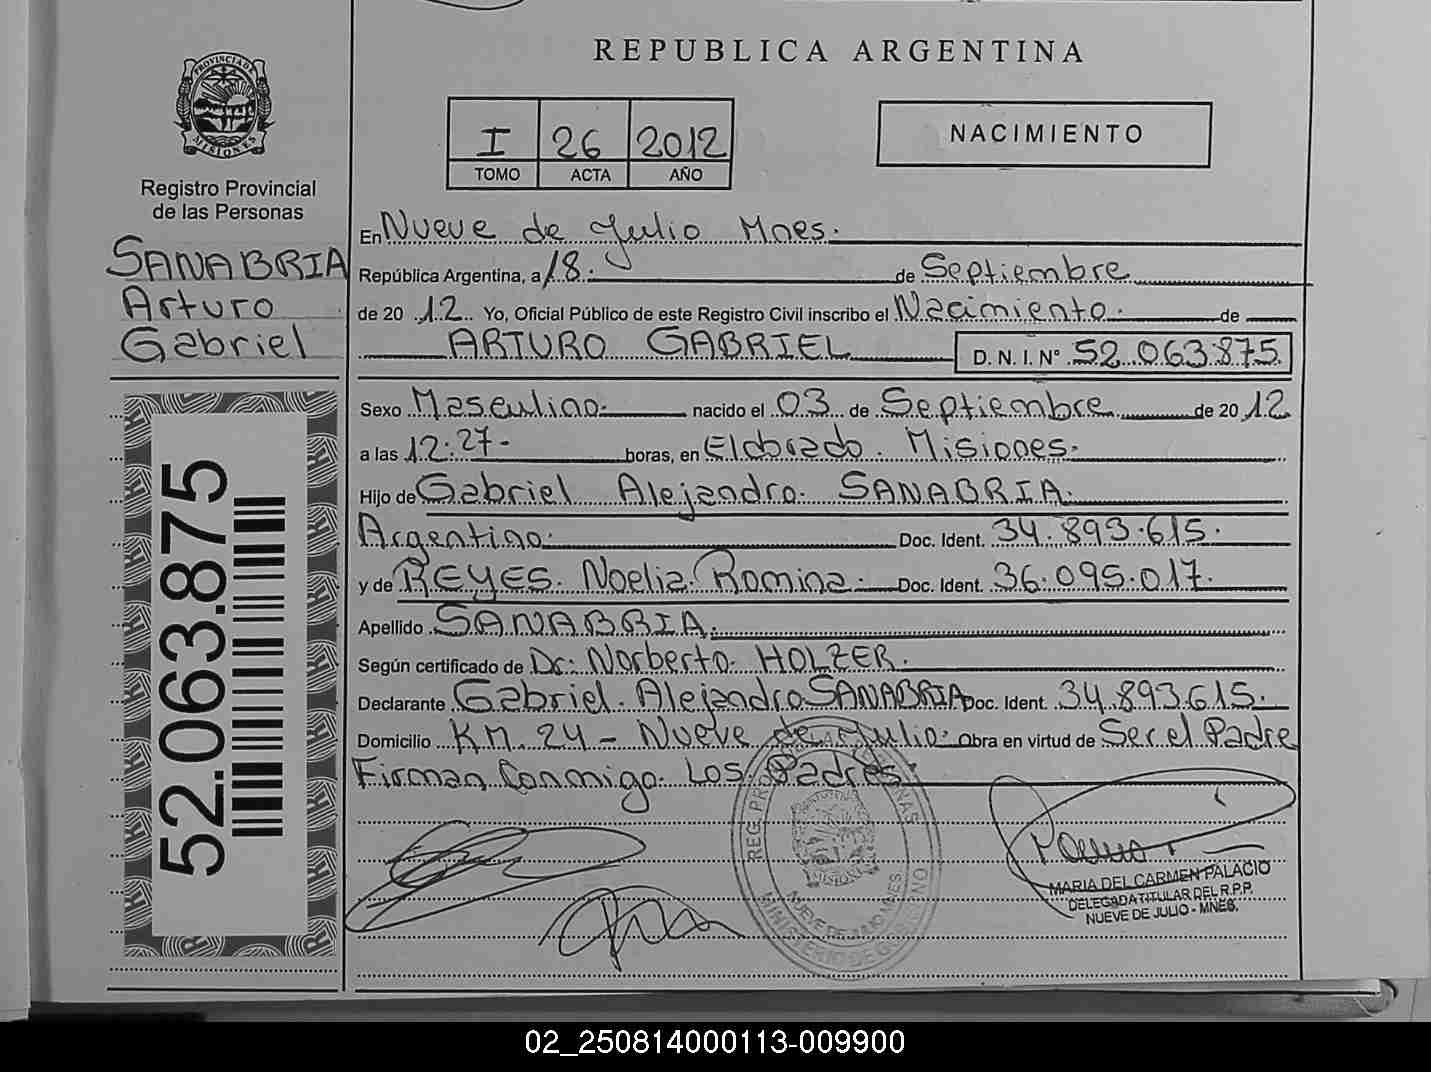 REPUBLICA ARGENTINA
PROVINCIA DE MISIONES
Registro Provincial
de las Personas
SANABRIA
Arturo
Gabriel
52.063.875
I 26 2012
TOMO ACTA AÑO
NACIMIENTO
En Nueve de Julio Mnes.
República Argentina, a 18. de Septiembre
de 20 12 Yo, Oficial Público de este Registro Civil inscribo el Nacimiento. de
ARTURO GABRIEL D. N. I. N° 52.063.875.
Sexo Masculino. nacido el 03 de Septiembre de 20 12
a las 12:27- horas, en Eldorado. Misiones.
Hijo de Gabriel Alejandro. SANABRIA.
Argentino. Doc. Ident. 34.893.615.
y de REYES. Noelia. Romina. Doc. Ident. 36.095.017.
Apellido SANABRIA.
Según certificado de Dr. Norberto. HOLZER.
Declarante Gabriel. Alejandro SANABRIA Doc. Ident. 34.893.615.
Domicilio KM. 24 - Nueve de Julio. Obra en virtud de Ser el Padre
Firman Conmigo. Los Padres.
MARIA DEL CARMEN PALACIO
DELEGADA TITULAR DEL R.P.P.
NUEVE DE JULIO - MNES.
NUEVE DE JULIO MNES.
MINISTERIO DE GOBIERNO
02_250814000113-009900